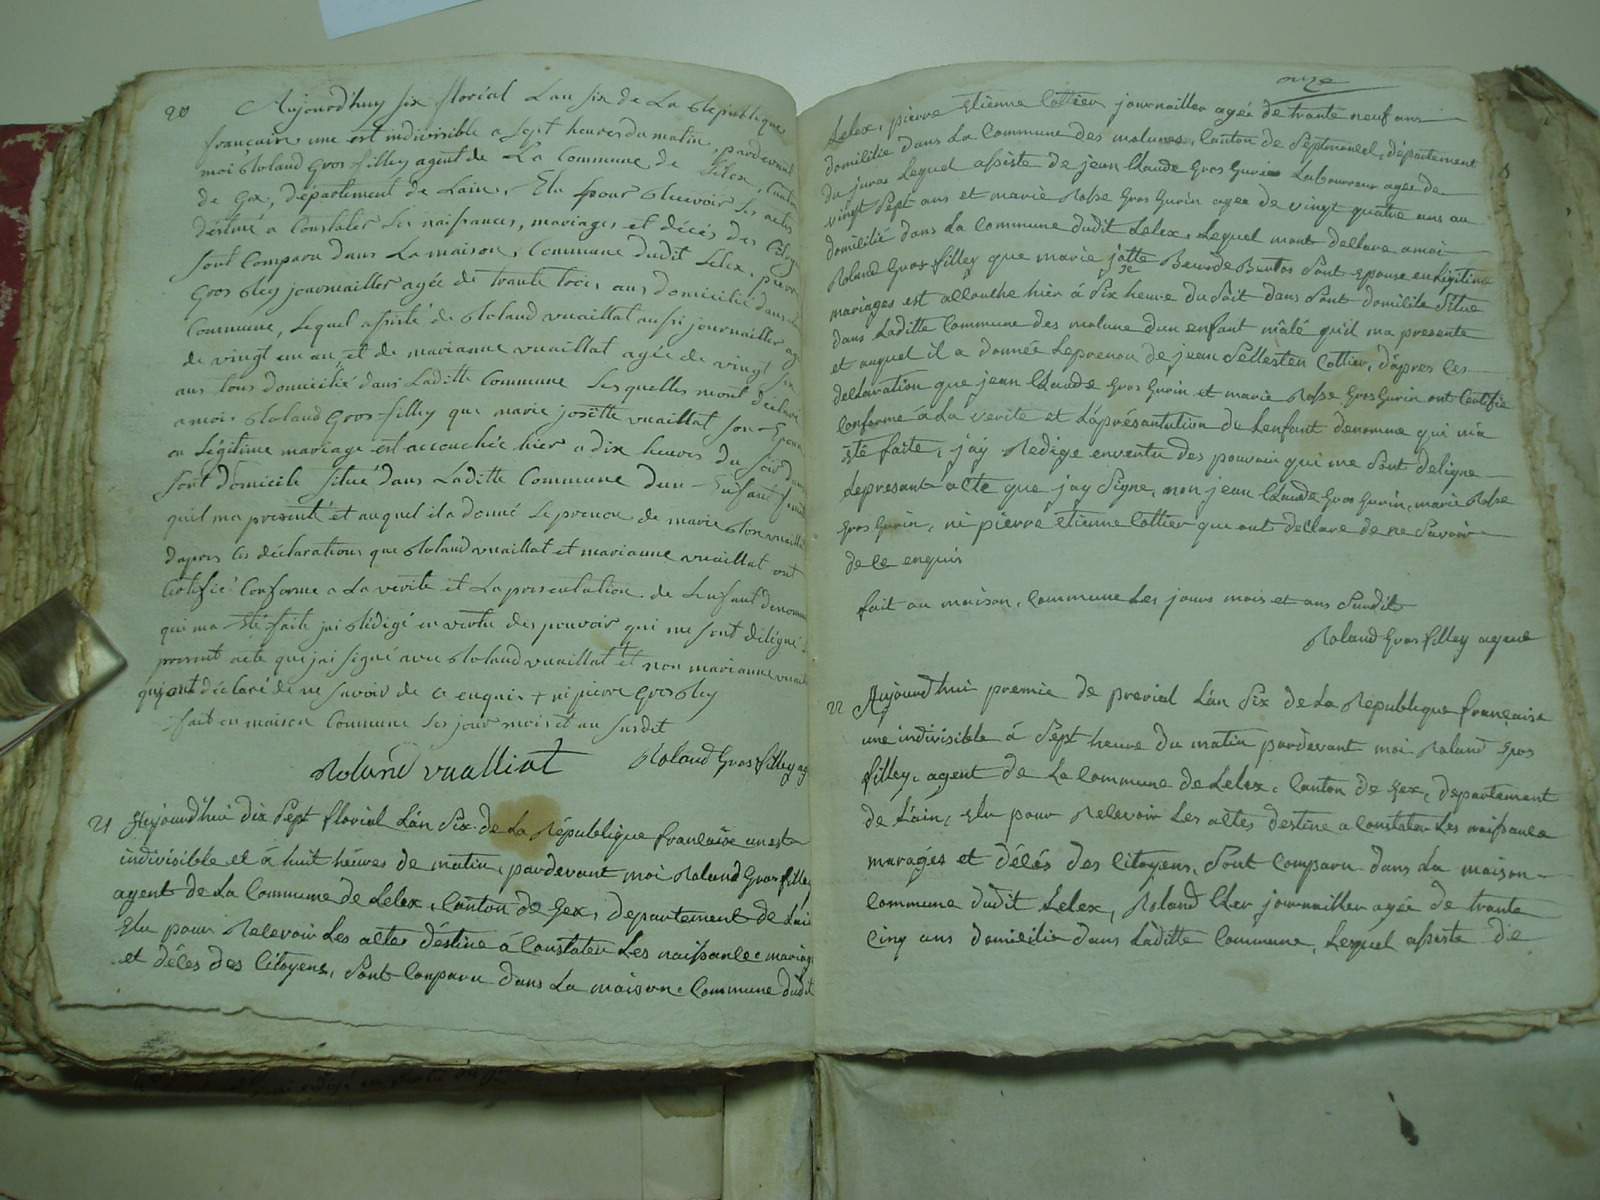 20 Aujourd'huy six florial Lan six de La Republique
francaise une est indivisible a sept heures du matin, pardevant
moi Roland Gros filley agent de La Commune de Lelex, Canton
de Gex, département de Lain, Elu pour Recevoir Les actes
destiné a Constater Les naissances, mariages et décés des Citoy
sont Comparu dans La maison, Commune dudit Lelex, pierre
Gros bley journailler agée de trante trois ans domicilié dans
Commune, Lequel assisté de Roland vuaillat aussi journailler agé
de vingt un an, et de marianne vuaillat agée de vingt six
ans tous domicilié dans Laditte Commune Lesquelles mont déclaré
a moi Roland Gros-filley que marie josette vuaillat son Epouse
en Légitime mariage est accouchée hier a dix heures du soir dans
sont domicile situé dans Laditte Commune dun Enfant
quil ma presenté et auquel il a donné Le prenon de marie Rose vuaill
dapres les déclarations que Roland vuaillat et marianne vuaillat ont
Certifié Conforme a La verite et La presentation de Lenfant denomme
qui ma été faite jai Rédigé en vertu des pouvoir qui me sont délégué
present acte que jai signé avec Roland vuaillat et non marianne vuaill
qui ont déclaré de ne savoir de ce enquis + ni pierre Gros bley
fait en maison Commune Les jour mois et an susdit
Roland vualliat Roland Gros filley ag
21 Aujourd'hui dix Sept florial Lán Six de La République francaise une est
indivisible et á huit héures de matin, pardevant moi Roland Gros filley
agent de La Commune de Lelex, Canton de Gex, departement de Lain
Elu pour Relevoir Les actes déstiné á Constater Les naissance mariag
et décés des Citoyens, Sont Comparu dans La maison Commune dudit
onze
Lelex, pierre Etienne Cottier journailler agée de trante neuf ans
domilitié dans La Commune des molunes, Canton de Septmoncel, département
du juras Lequel assiste de jean Claude Gros Gurin Laboureur agée de
vingt Sept ans et marie Rose Gros Gurin agée de vingt quatre ans au
domilitié dans La Commune dudit Lelex, Lequel mont dellare a moi
Roland Gros filley que marie jotte Benode Sont Epouse en Légitime
mariages est allouche hier á Six heure du Soit dans Sont domilile Situe
dans Laditte Commune des molune dun enfant mâlé quil ma presente
et auquel il a donnée Leprenon de jean Sellesten Cottier, dápres les
dellaration que jean Claude Gros Gurin et marie Rose Gros Gurin ont Certifie
Conforme á La verite et Láprésantation de Lenfant denomme qui ma
été faite, jáy Redige en vertu des pouvoir qui me Sont deligne
Lepresant acte que jay Signe, non jean Claude Gros Gurin, marie Rose
Gros Gurin, ni pierre Etienne Cottier que ont declare de ne Savoir
de ce enquis
fait au maison, Commune Les jours mois et ans Sundit
Roland Gros filley agent
22 Aujourd'hui premie de prerial Lán Six de La Republique francaise
une indivisible á Sept heure du matin pardevant moi Roland Gros
filley, agent de La Commune de Lelex, Canton de Gex, departement
de Láin, Elu pour Relevoir Les altes destine a Constater Les naissance
marages et délés des Citoyens, Sont Comparu dans La maison
Commune dudit Lelex, Roland journailler agée de trante
Cinq ans domicilie dans Laditte Commune, Lequel assiste de